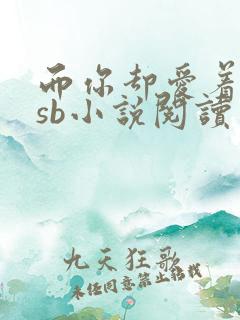 而你却爱着
sb小说閱讀
九天狂歌
未经同意禁止转载